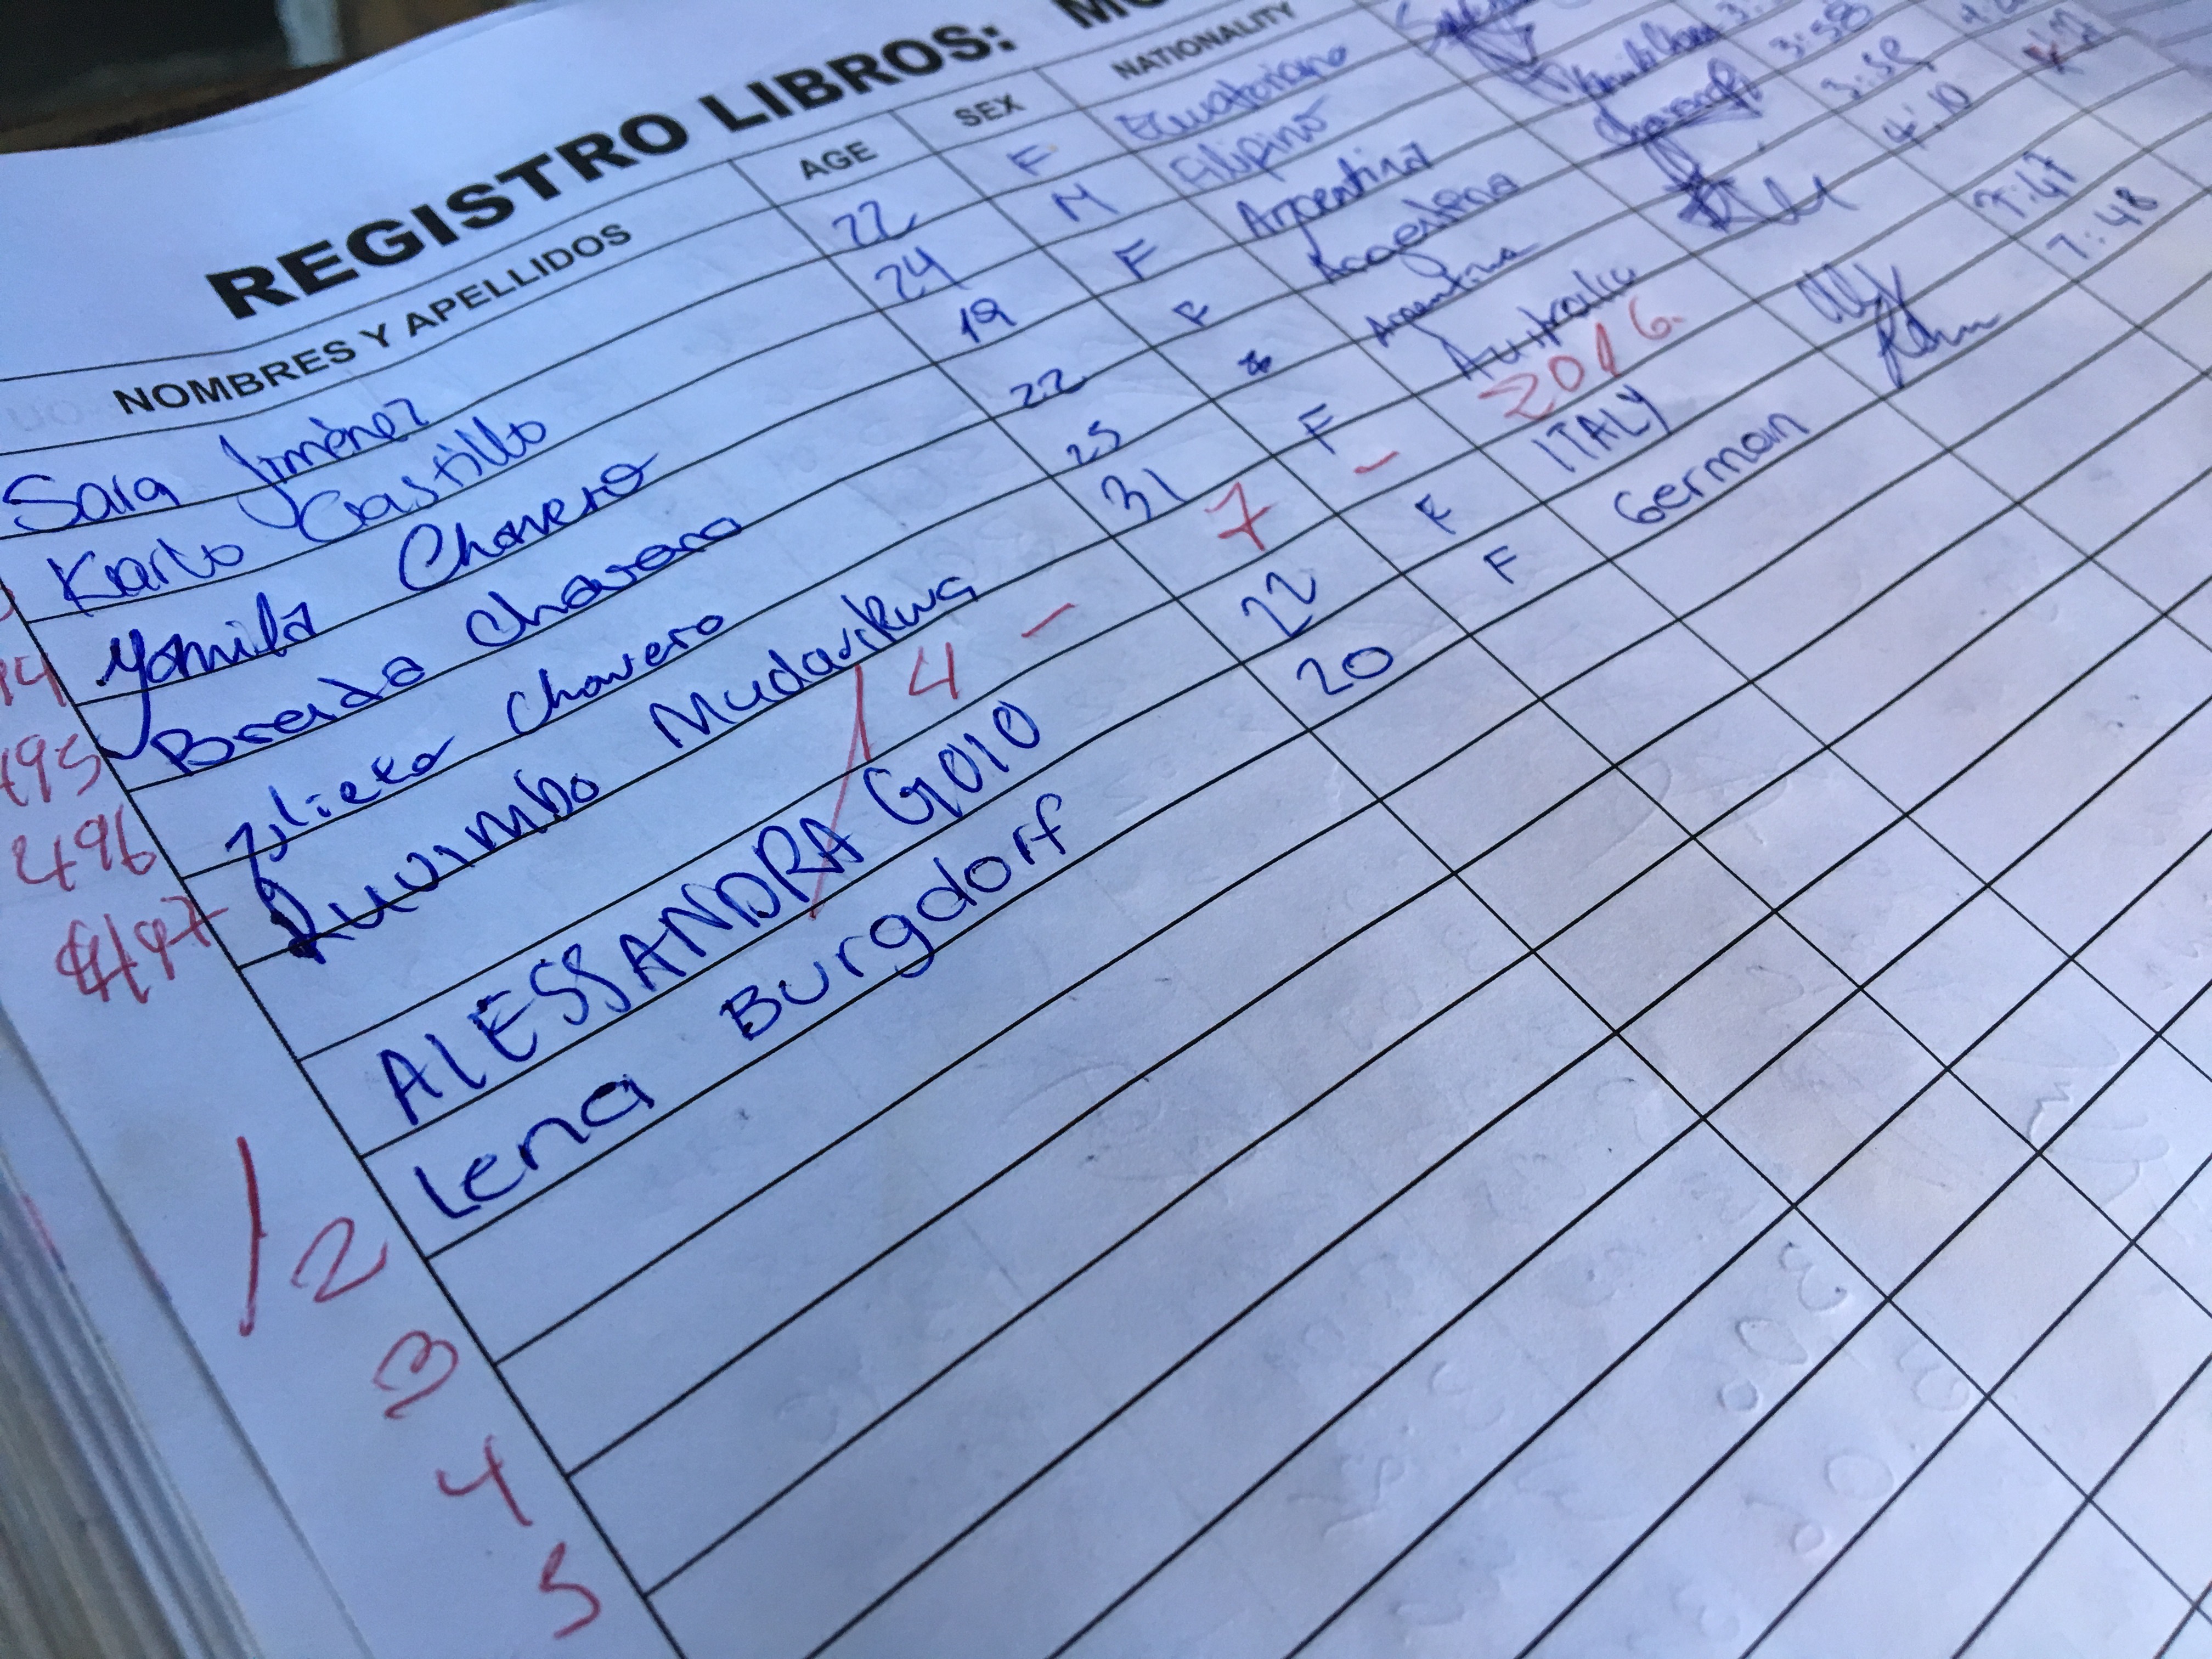 REGISTRO LIBROS:
NOMBRES Y APELLIDOS AGE SEX NATIONALITY
Sara Jiménez 22 F Ecuatoriana
Karlo Castillo 24 M Filipino 3:58
Yamila Chavero 19 F Argentina 3:59
494 Brenda Chavero 22 F Argentina 4:10
495 Julieta Chavero 25 Argentina
496 Ruvimbo Mudavikwa 31 F Australia
497 / 4 - 7 - 2016.
ALESSANDRA GOIO 22 F ITALY 7:47
Lena Burgdorf 20 F German 7:48
/ 2
3
4
5